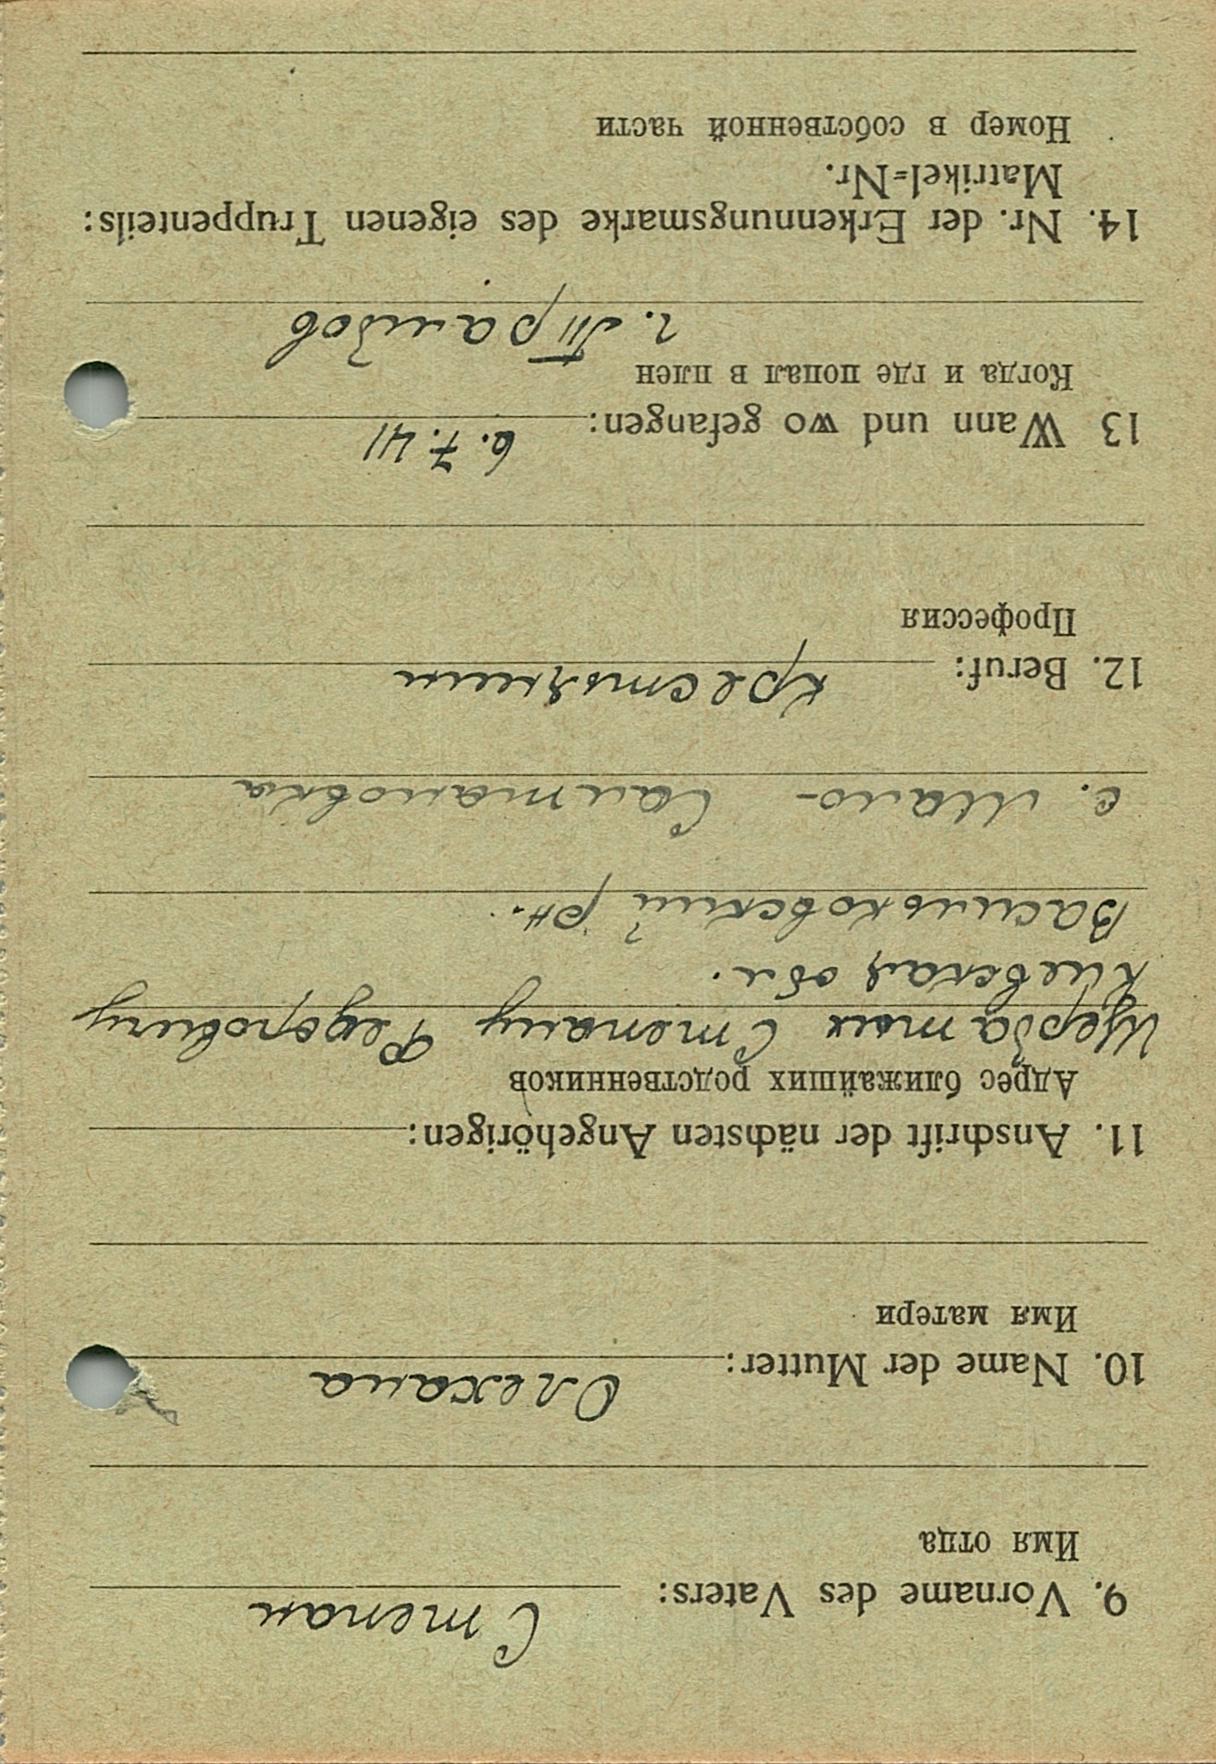 9. Vorname des Vaters: Степан
Имя отца
10. Name der Mutter: Олехана
Имя матери
11. Anschrift der nächsten Angehörigen:
Адрес ближайших родственников
Степану Федоровичу
Киевская обл.
Васильковский рн.
с. Мало- Салтановка
12. Beruf: крестьянин
Профессия
13 Wann und wo gefangen: 6.7.41
Когда и где попал в плен
г.
14. Nr. der Erkennungsmarke des eigenen Truppenteils:
Matrikel=Nr.
Номер в собственной части